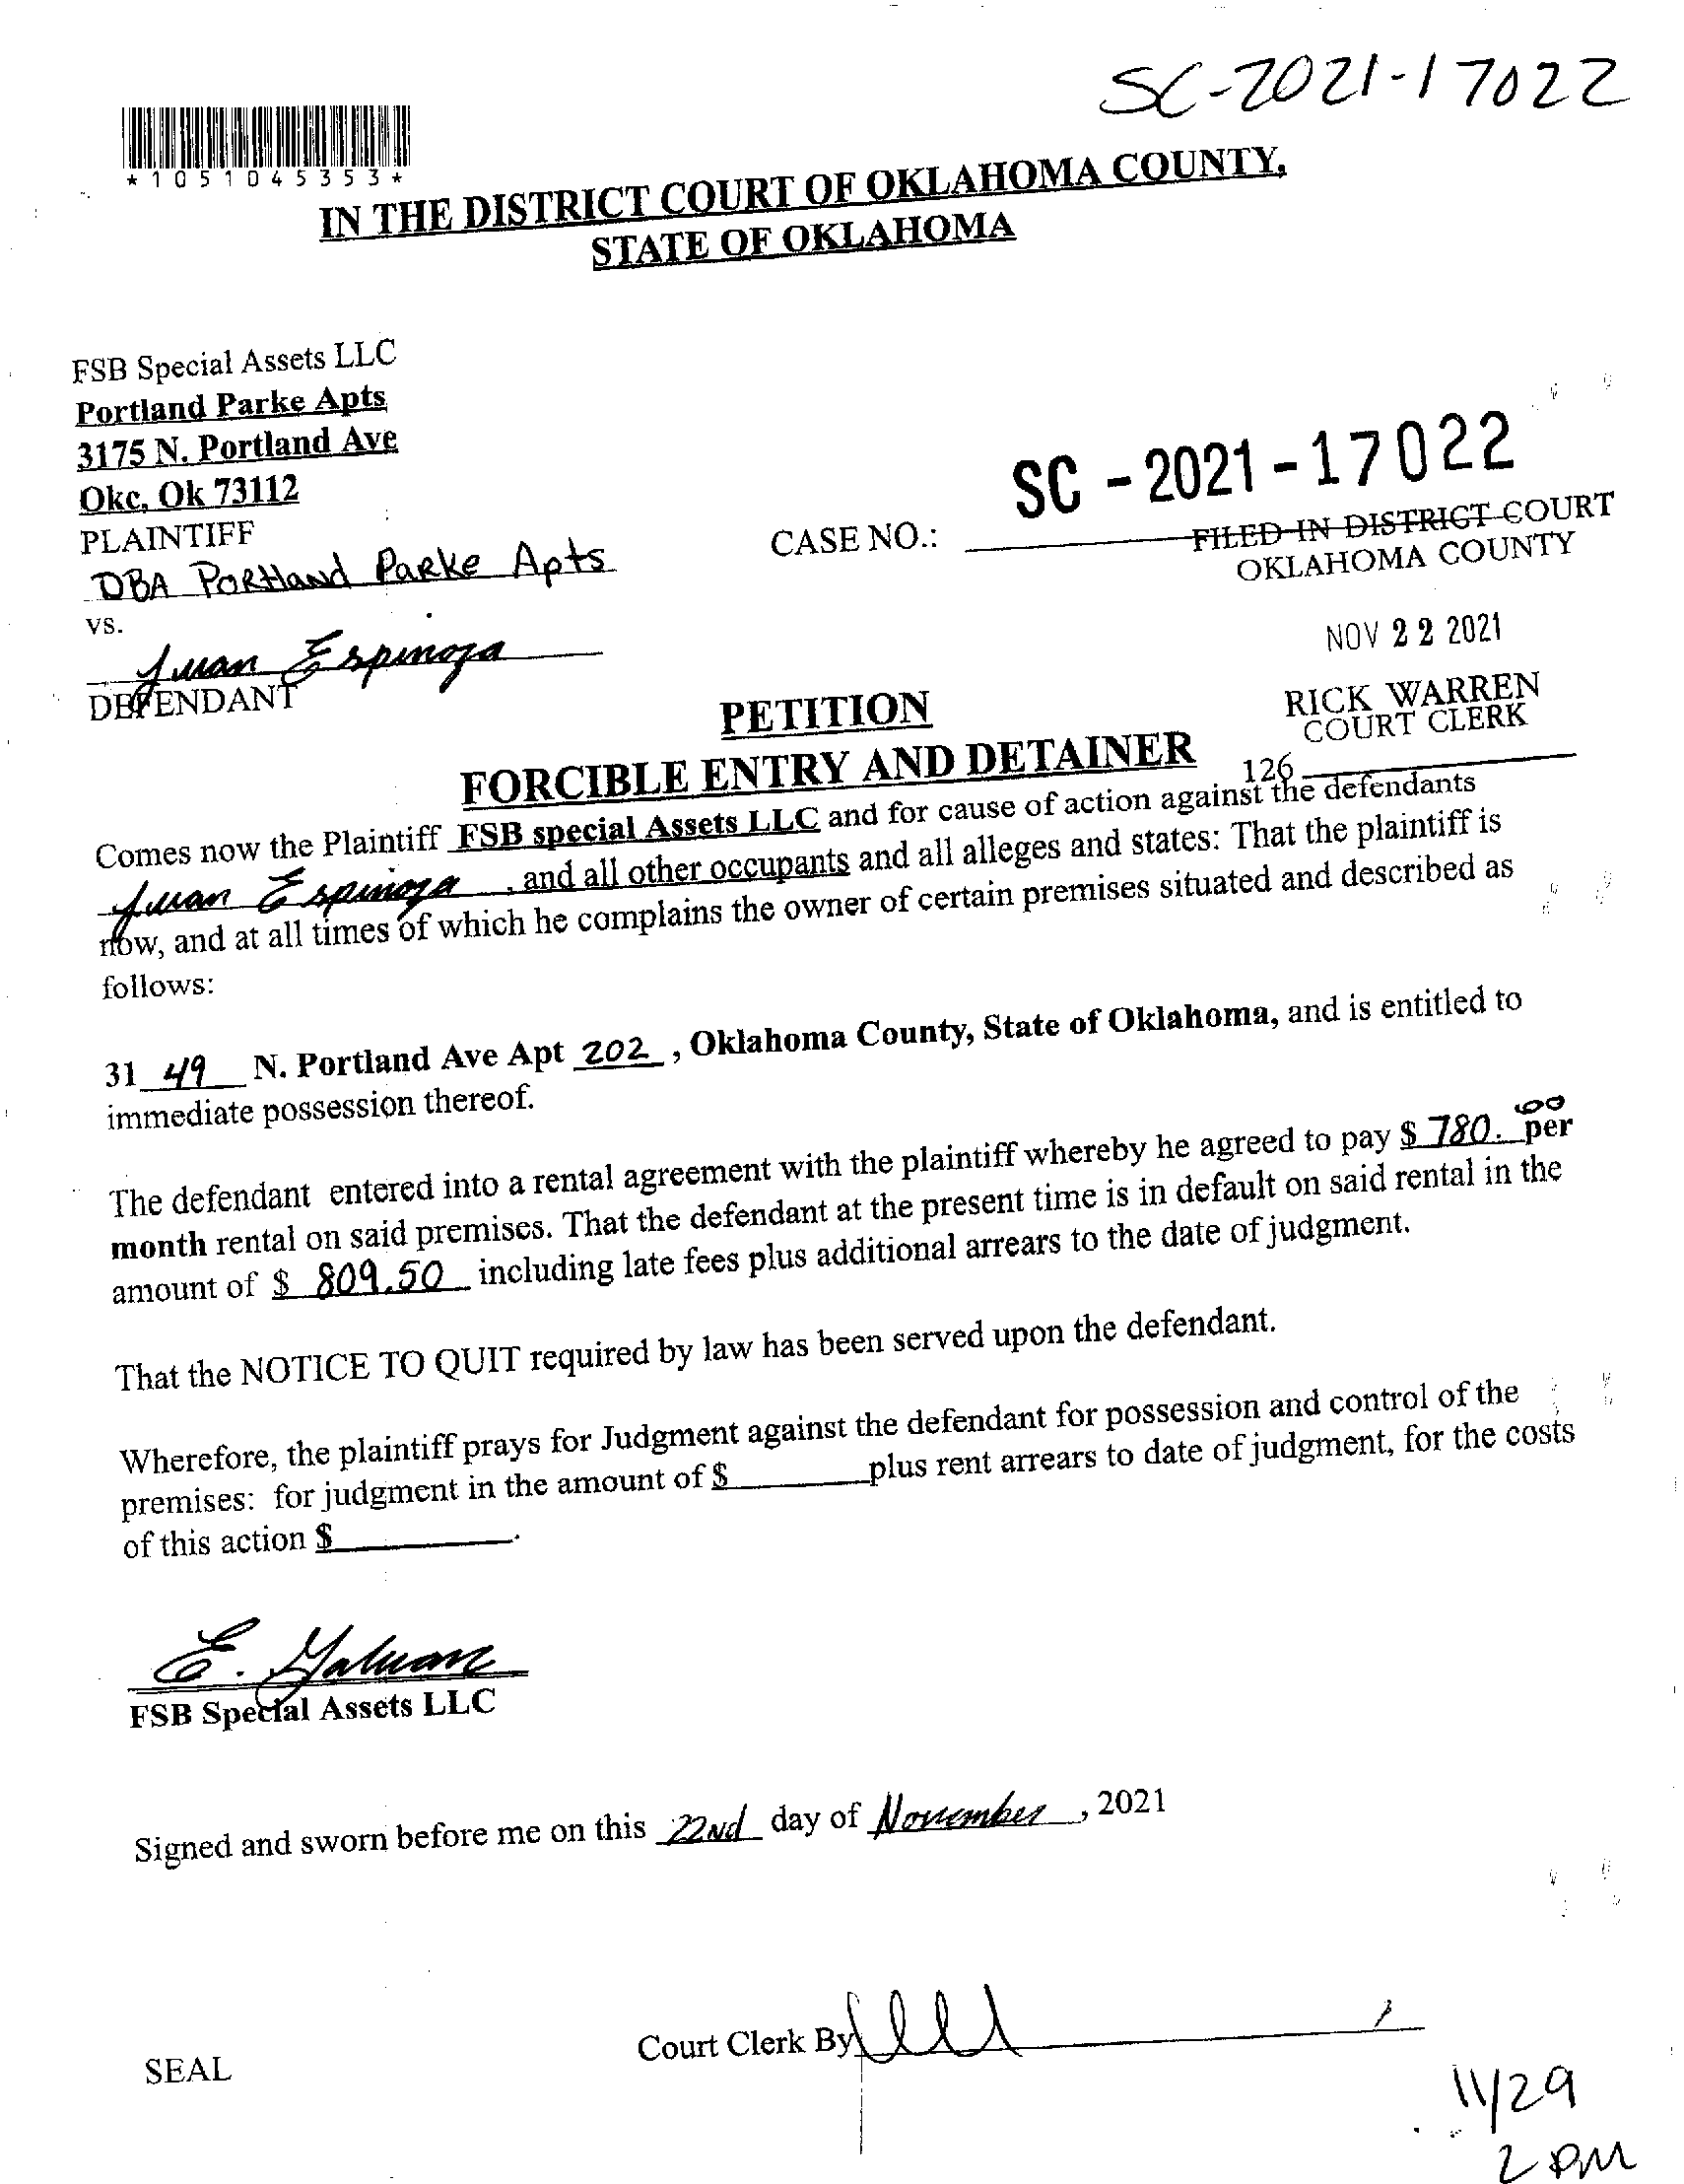 SC-2021-17022
*1051045353*
IN THE DISTRICT COURT OF OKLAHOMA COUNTY,
STATE OF OKLAHOMA
FSB Special Assets LLC
Portland Parke Apts
3175 N. Portland Ave
Okc, Ok 73112
PLAINTIFF
DBA Portland Parke Apts
vs.
Juan Espinoza
DEFENDANT
CASE NO.: SC - 2021 - 17022
FILED IN DISTRICT COURT
OKLAHOMA COUNTY
NOV 22 2021
RICK WARREN
COURT CLERK
126
PETITION
FORCIBLE ENTRY AND DETAINER
Comes now the Plaintiff FSB special Assets LLC and for cause of action against the defendants
Juan Espinoza, and all other occupants and all alleges and states: That the plaintiff is
now, and at all times of which he complains the owner of certain premises situated and described as
follows:
31 49 N. Portland Ave Apt 202, Oklahoma County, State of Oklahoma, and is entitled to
immediate possession thereof.
The defendant entered into a rental agreement with the plaintiff whereby he agreed to pay $ 780.00 per
month rental on said premises. That the defendant at the present time is in default on said rental in the
amount of $ 809.50 including late fees plus additional arrears to the date of judgment.
That the NOTICE TO QUIT required by law has been served upon the defendant.
Wherefore, the plaintiff prays for Judgment against the defendant for possession and control of the
premises: for judgment in the amount of $ plus rent arrears to date of judgment, for the costs
of this action $ .
E. Galvan
FSB Special Assets LLC
Signed and sworn before me on this 22nd day of November, 2021
Court Clerk By
SEAL
11/29
2 PM